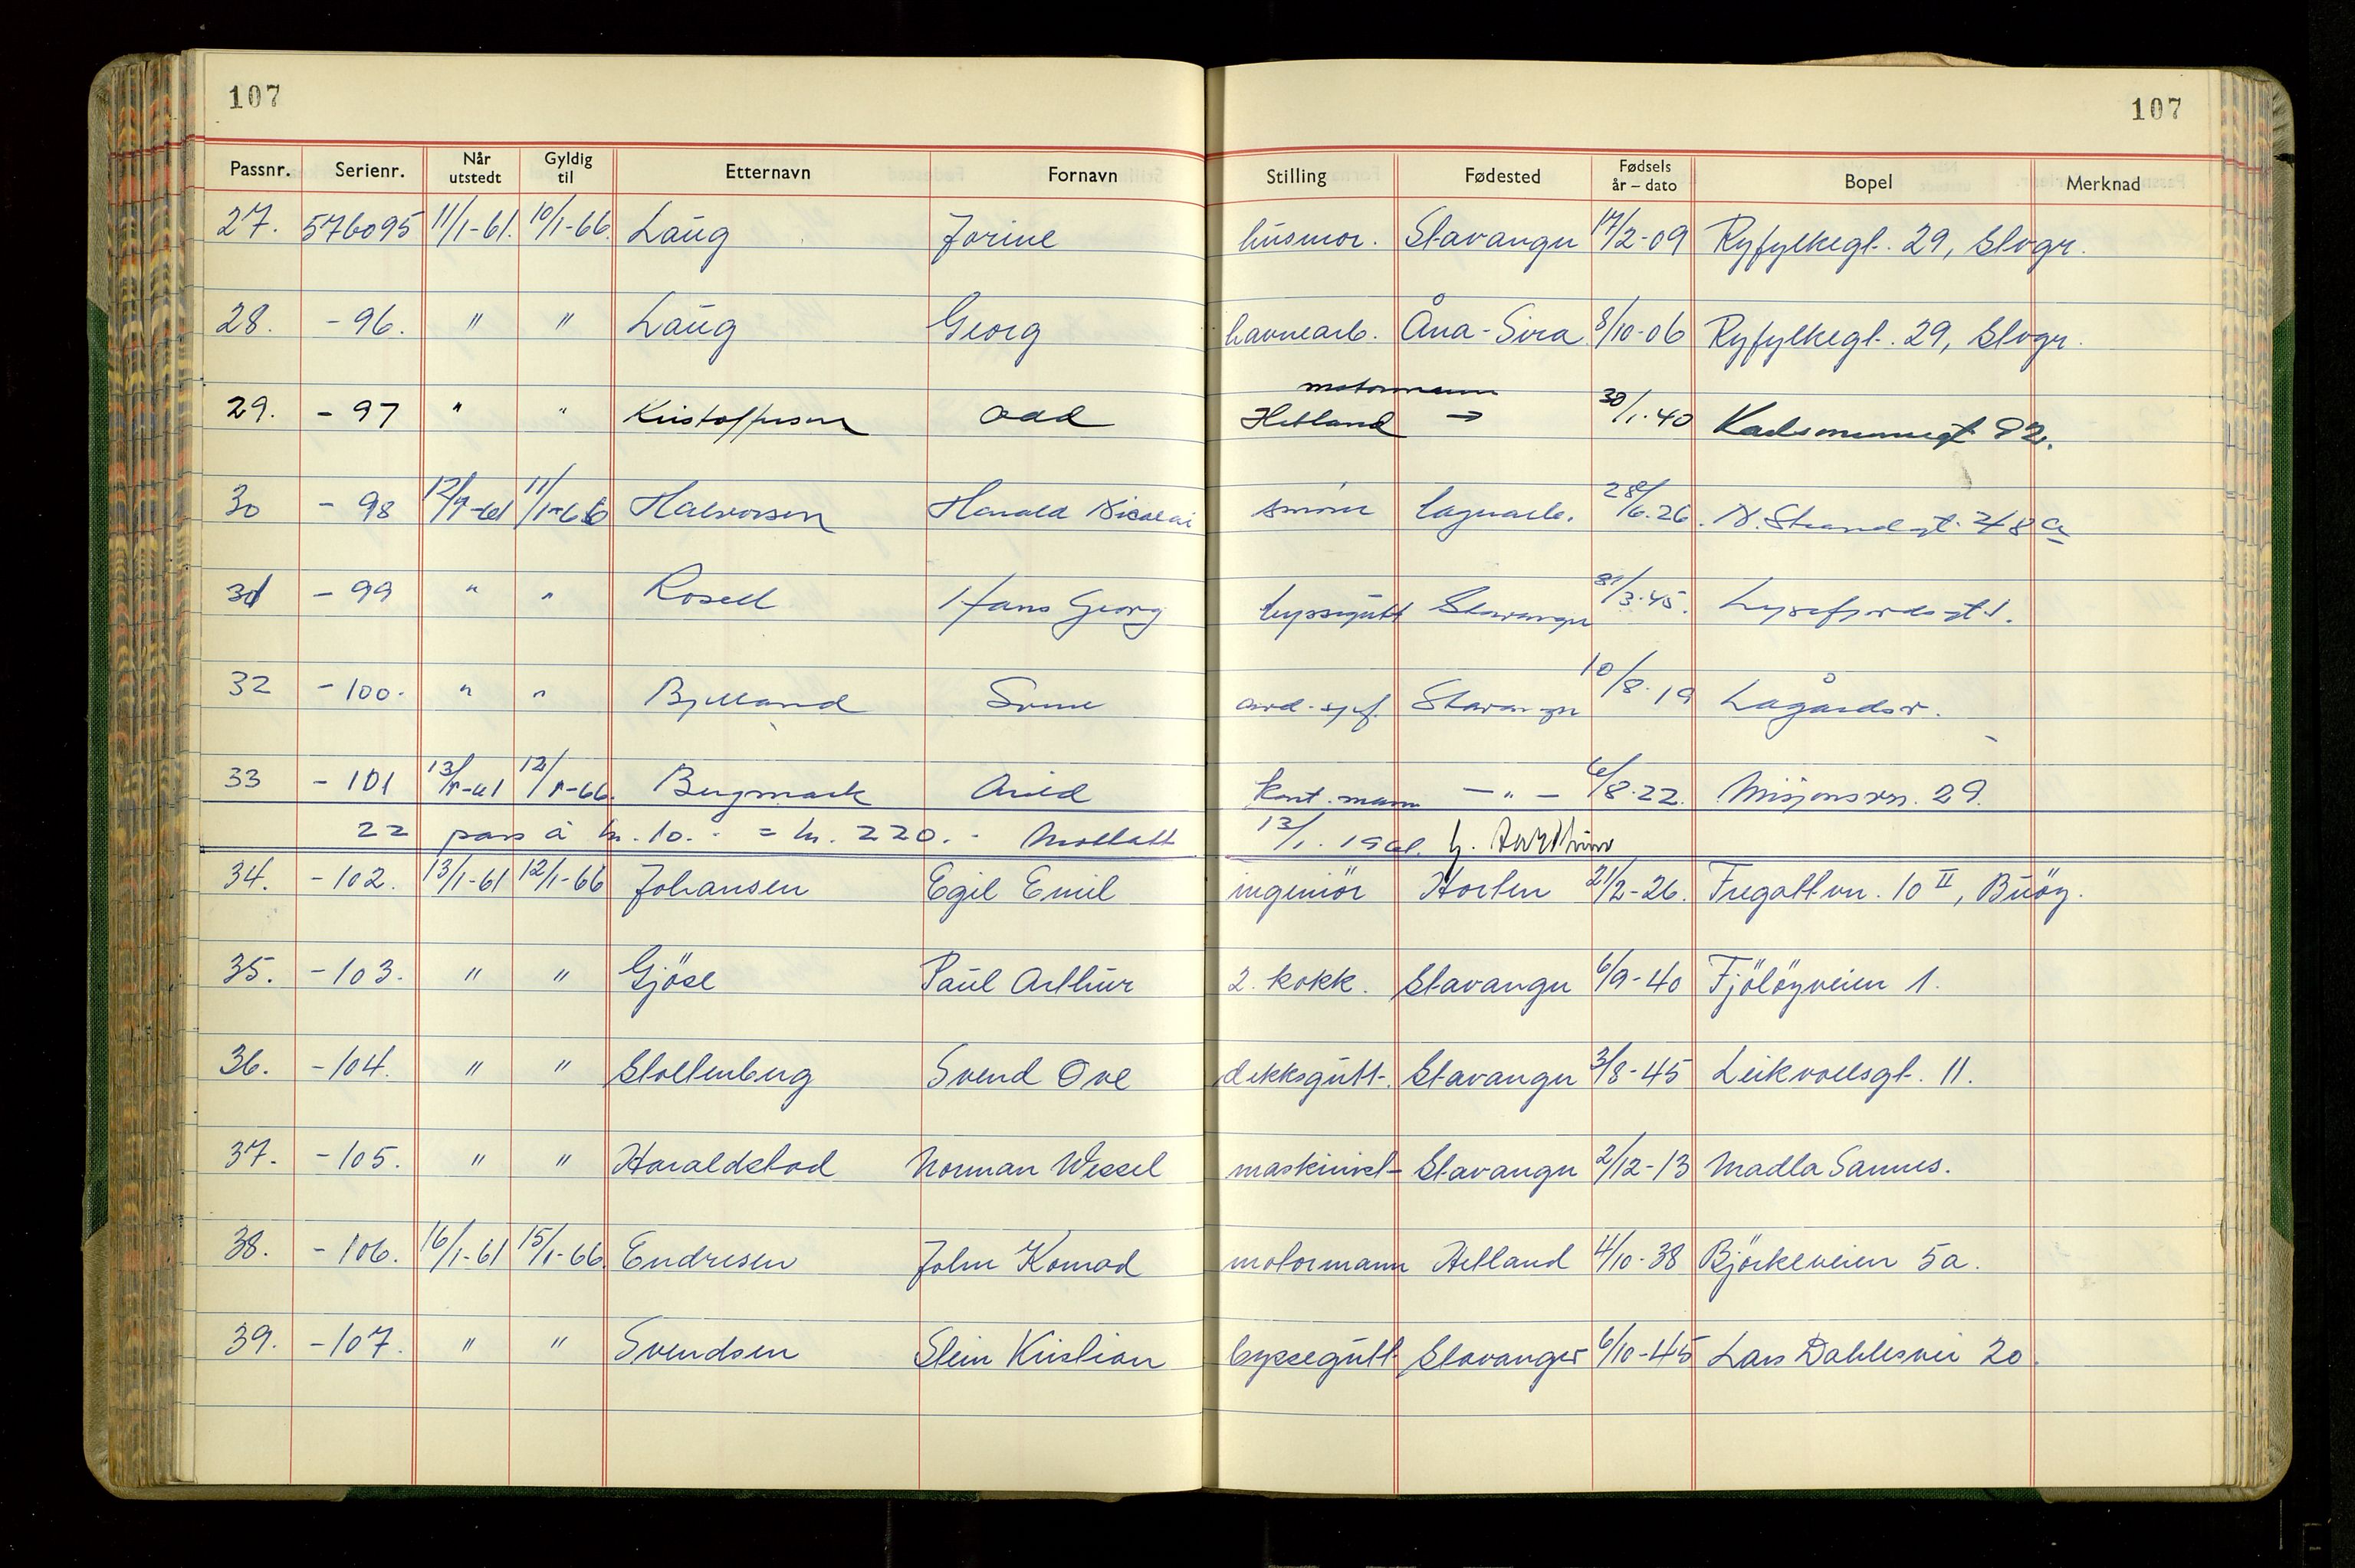 107 107
Passnr. Serienr. Når utstedt Gyldig til Etternavn Fornavn Stilling Fødested Fødsels år – dato Bopel Merknad
27. 576095 11/1-61. 10/1-66. Laug Jorine husmor. Stavanger 17/2-09 Ryfylkegt. 29, Stvgr.
28. - 96. " " Laug Georg havnearb. Åna-Sira 8/10-06 Ryfylkegt. 29, Stvgr.
motormann
29. - 97 " " Kristoffersen Odd Hetland → 30/1.40 92.
30 - 98 12/1-61 11/1-66 Halvorsen Harald Nicolai smører 28/6.26. N. Strandgt. 48 a
31 - 99 " " Rosell Hans Georg byssegutt Stavanger 31/3.45. Lysefjordsgt 1.
32 - 100. " " Bjelland Sverre Stavanger 10/8.19 Lagårdsv.
33 - 101 13/1-61 12/1-66. Bergmark Arild kont.mann - " - 6/8.22. Misjonsvn. 29.
22 pass à kr. 10.- = kr. 220.- Mottatt 13/1. 1961.
34. - 102. 13/1-61 12/1-66 Johansen Egil Emil ingeniör Horten 21/2-26. Fregattvn. 10 II, Buöy.
35. - 103. " " Gjöse Paul Arthur 2. kokk. Stavanger 6/9-40 Fjölöyveien 1.
36. - 104. " " Stoltenberg Svend Ove dekksgutt. Stavanger 3/8-45 Leikvollsgt. 11.
37. - 105. " " Haraldstad Norman Wessel maskinist- Stavanger 2/12-13 Madla Sannes.
38. - 106. 16/1-61 15/1-66. Endresen John Konrad motormann Hetland 4/10-38 Björkeveien 5a.
39. - 107. " " Svendsen Stein Kristian byssegutt Stavanger 6/10-45 Lars Dahlesvei 20.